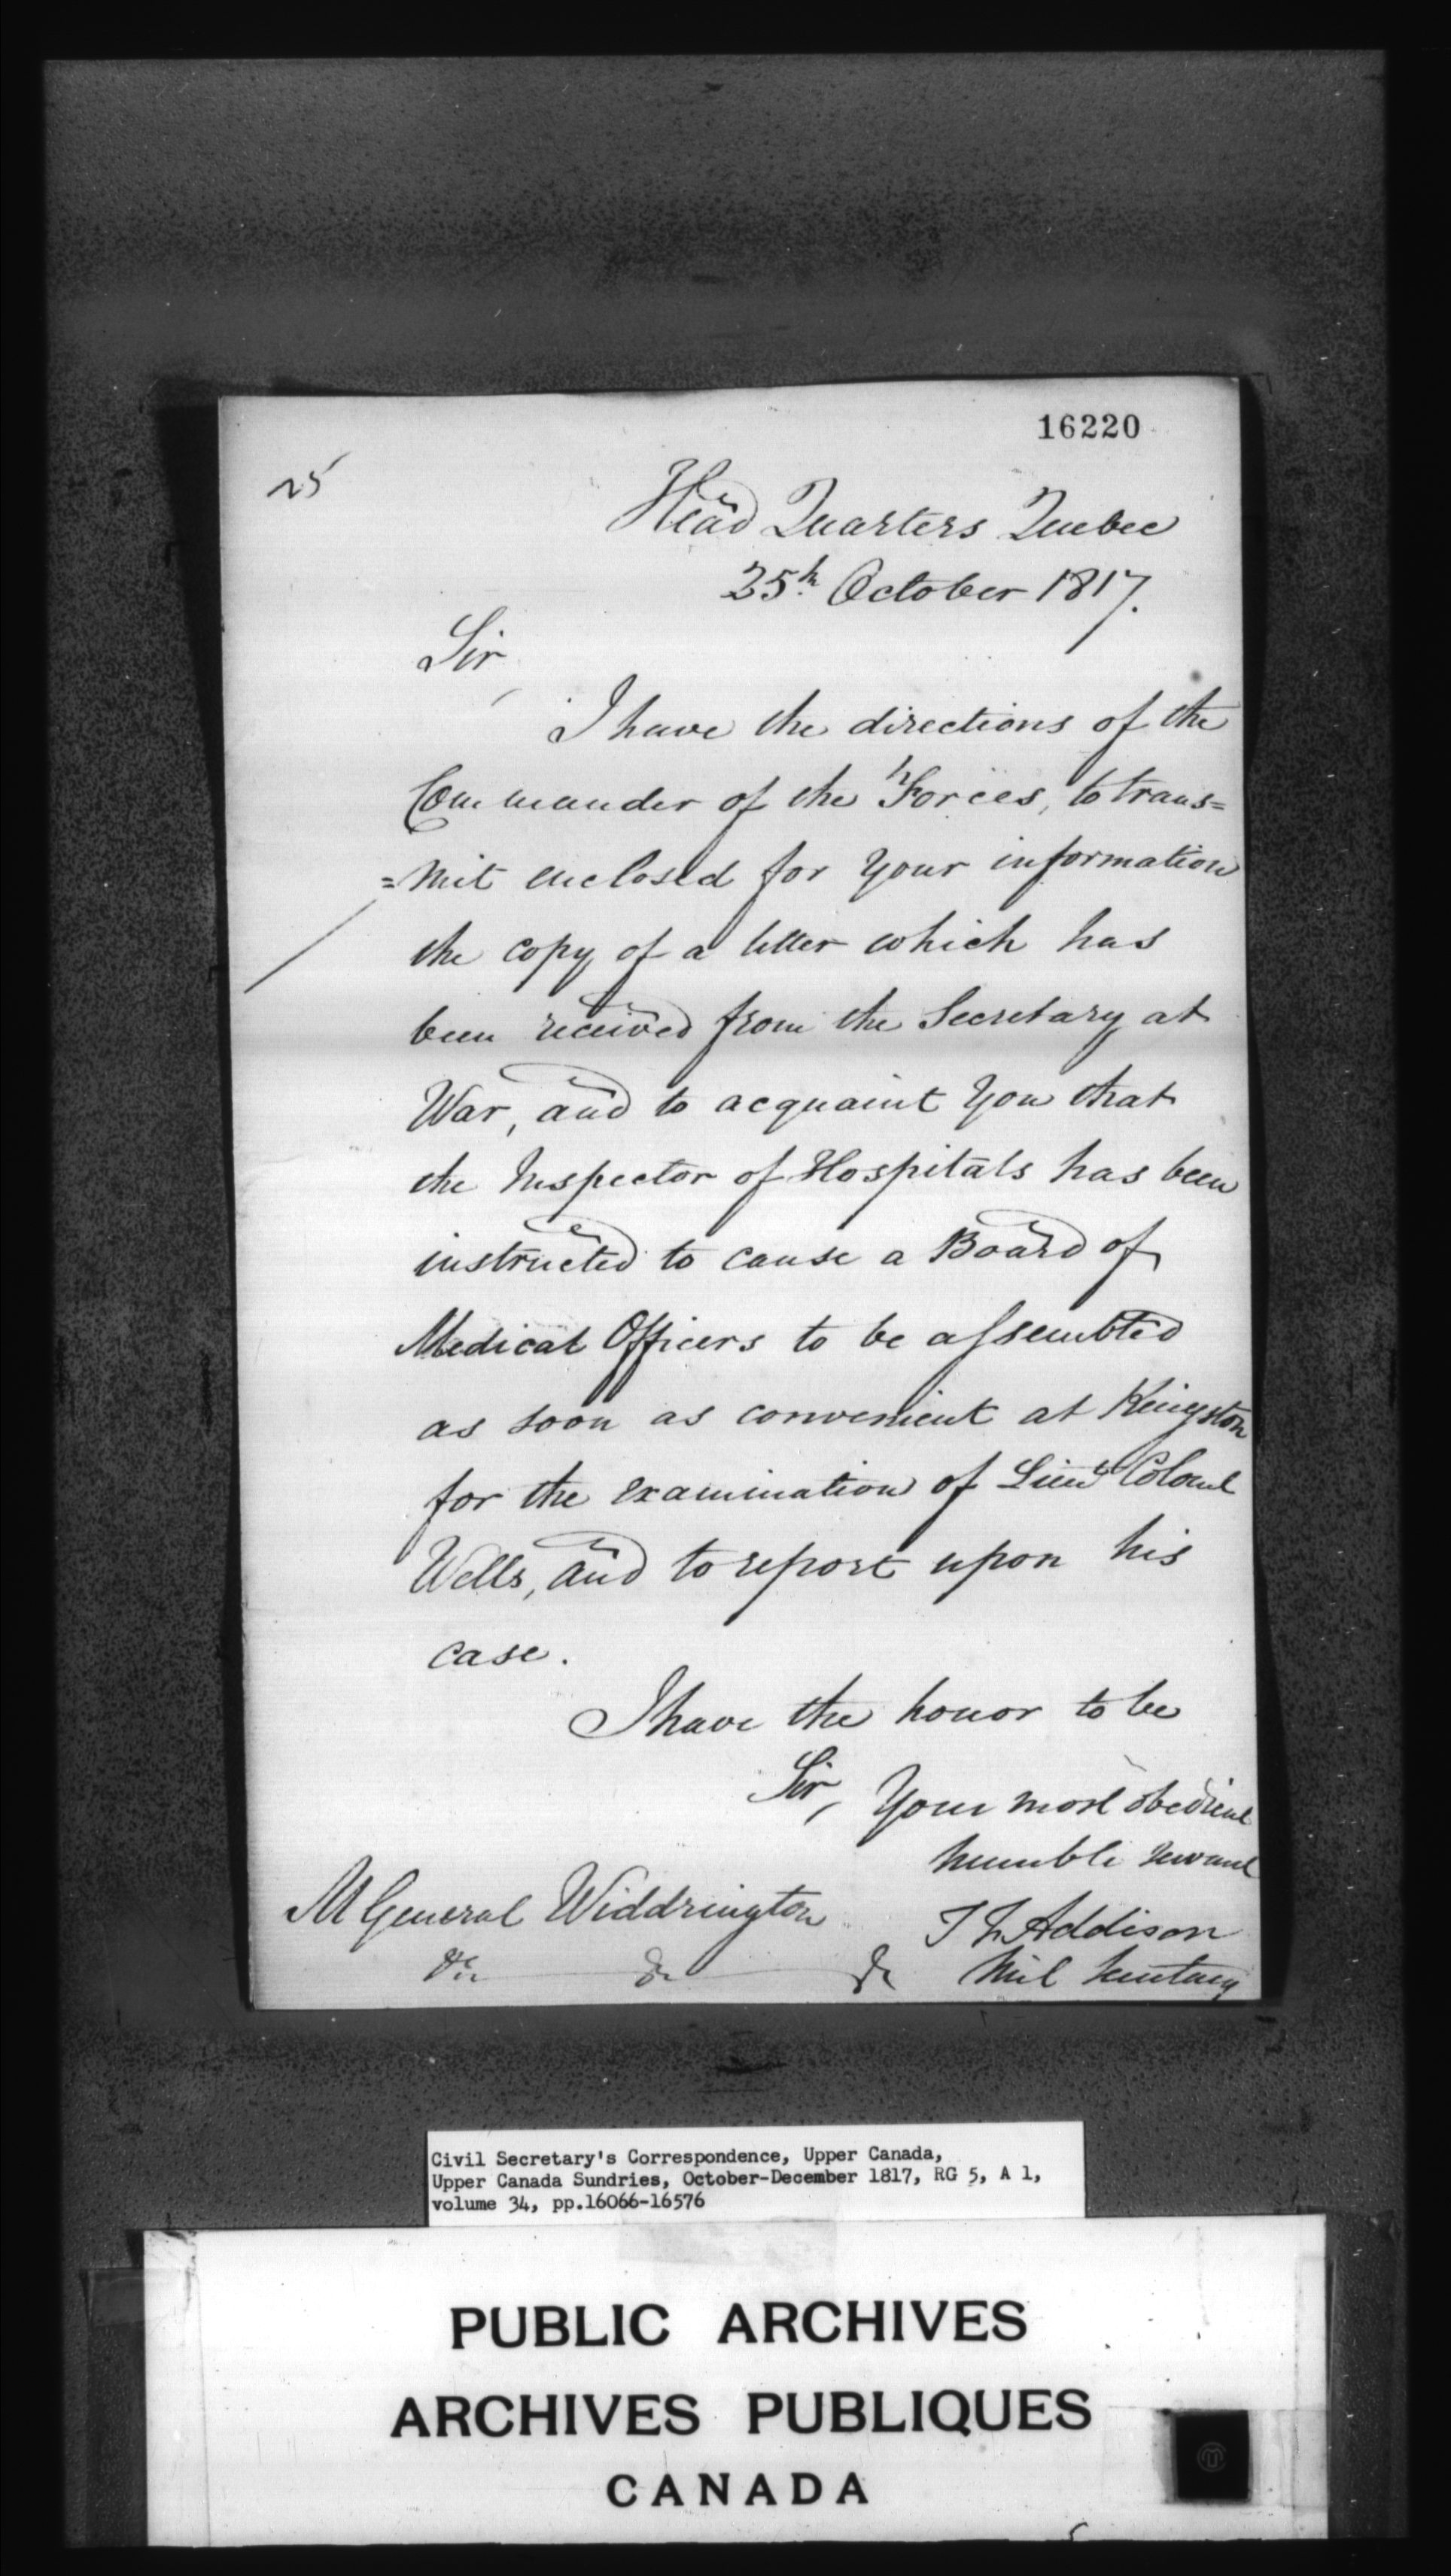 16220
25
Head Quarters Quebec
25th October 1817.
Sir,
I have the directions of the
Commander of the Forces, to trans=
=mit enclosed for Your information
the copy of a letter which has
been received from the Secretary at
War, and to acquaint You that
the Inspector of Hospitals has been
instructed to cause a Board of
Medical Officers to be assembled
as soon as convenient at Kingston
for the examination of Lieut Colonel
Wells, and to report upon his
case.
I have the honor to be
Sir, Your most obedient
humble servant
M General Widdrington
T L Addison
&c &c &c
Mil Secretary
Civil Secretary's Correspondence, Upper Canada,
Upper Canada Sundries, October-December 1817, RG 5, A 1,
volume 34, pp.16066-16576
PUBLIC ARCHIVES
ARCHIVES PUBLIQUES
CANADA